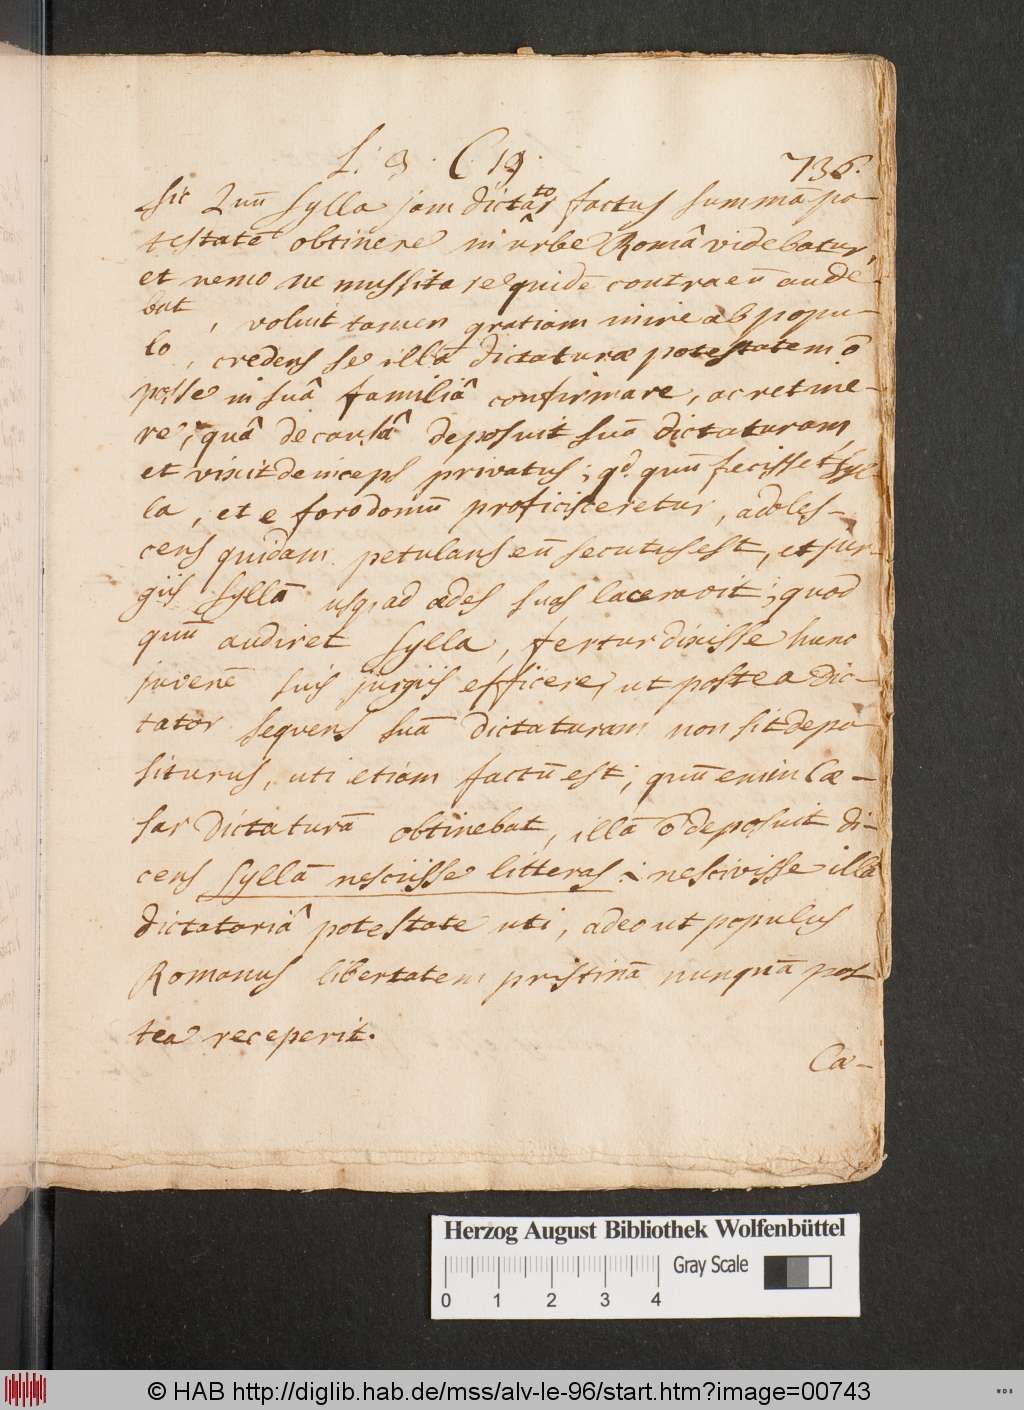 L. 3. C 19.
736.
sic Quū Sylla jam dictator factus summā po
testatē obtinere in urbe Româ videbatur,
et nemo ne mussitare quidē contra eū aude
bat, voluit tamen gratiam inire ab popu-
lo, credens se illā dictaturæ potestatem ō
posse in suâ familiâ confirmare, ac retine-
re, quâ de causâ deposuit suā dictaturam,
et vixit deinceps privatus; qd quū fecisset Syl-
la, et e foro domū proficisceretur, adoles-
cens quidam petulans eū secutus est, et jur-
giis Syllā usq; ad ædes suas laceravit; quod
quū audiret Sylla, fertur dixisse hunc
juvenē suis jurgiis efficere, ut postea dic-
tator sequens suā dictaturam non sit depo
siturus, uti etiam factū est; quū enim Cæ-
sar Dictaturā obtinebat, illā ō deposuit di-
cens Syllā nesciisse litteras i nescivisse illâ
dictatoriâ potestate uti, adeo ut populus
Romanus libertatem pristinā nunquā pos
tea receperit.
Cæ-
Herzog August Bibliothek Wolfenbüttel
Gray Scale
0 1 2 3 4
© HAB http://diglib.hab.de/mss/alv-le-96/start.htm?image=00743